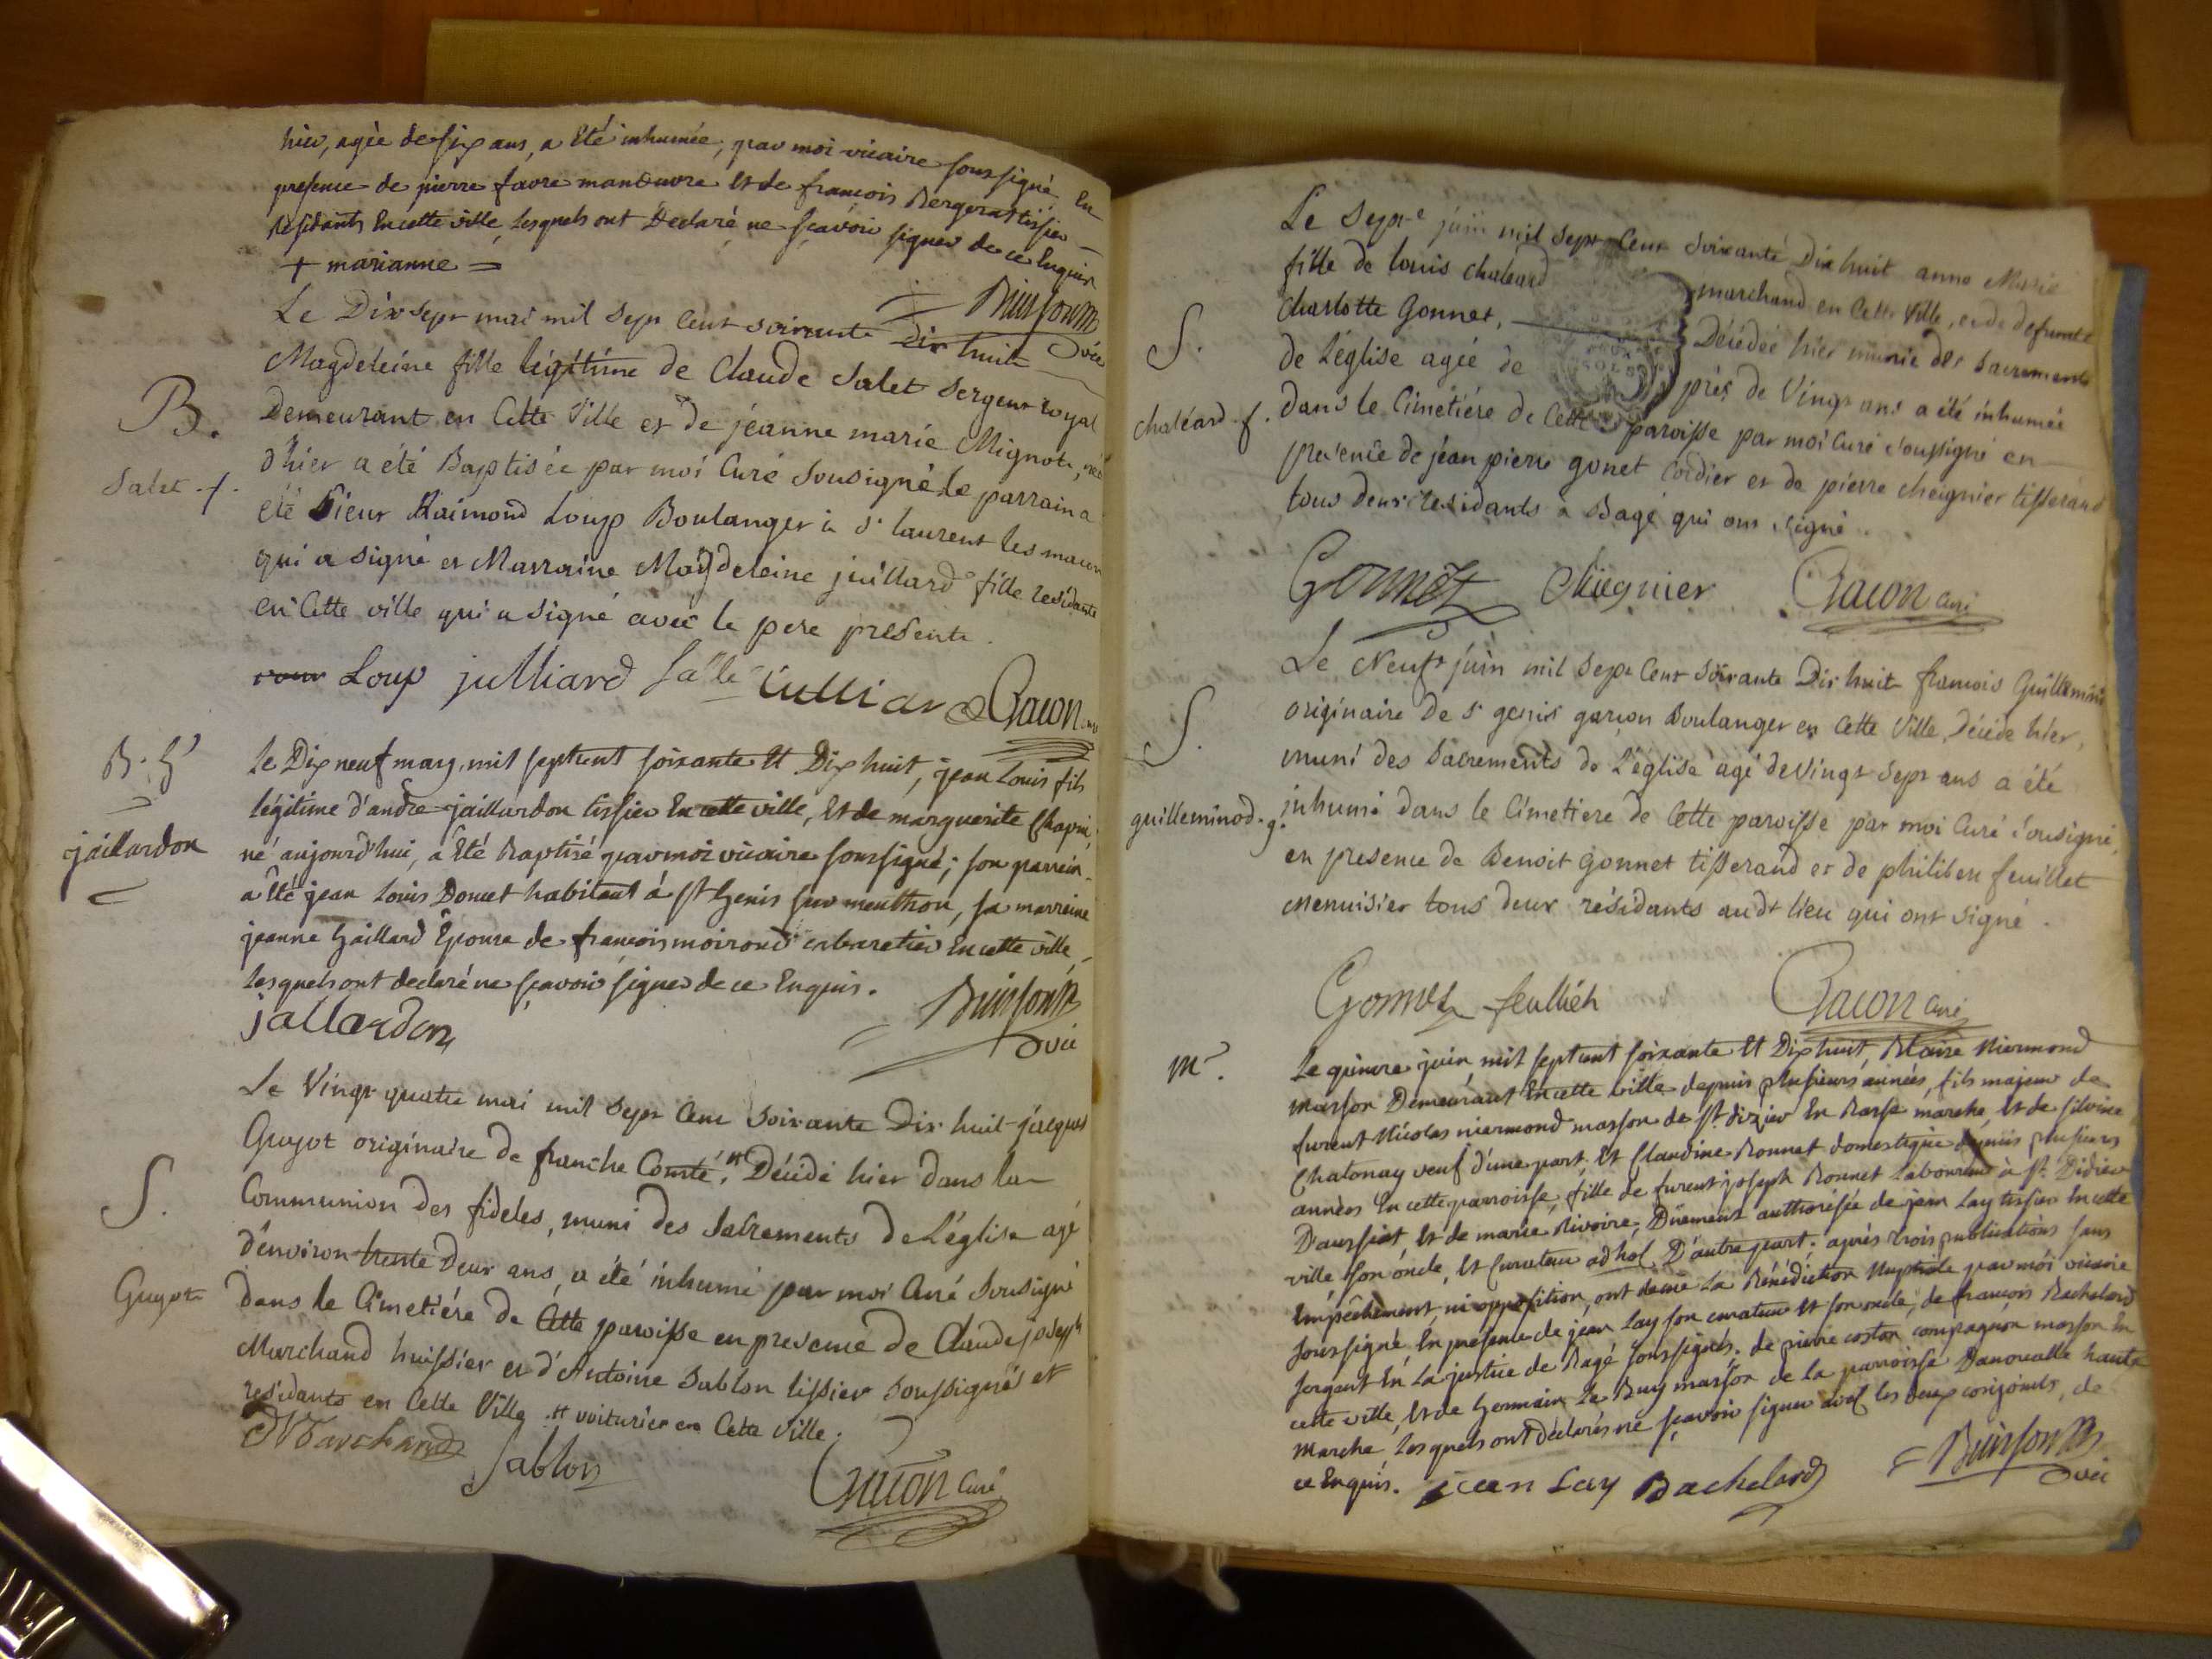 hier, agèe de six ans, a Eté inhumée, par moi vicaire soussigné En
presence de pierre favre manœuvre Et de francois Bergerat tissier
Residants En cette ville, Lesquels ont Declaré ne sçavoir signer de ce Enquis
+ marianne =
Buisson
vic
Le Dix sept mai mil sept Cent soixante Dix huit
Magdeleine fille légitime de Claude Salet Sergent royal
B.
Demeurant en Cette Ville et de jéanne marie Mignot, née
d'hier a été Baptisée par moi Curé Sousigné, Le parrain a
Salet . f.
été Sieur Raimond Loup Boulanger à St laurent les macon
qui a signé et Marraine Magdeleine juillard fille residante
en Cette ville qui a signé avec le pere présent.
Loup julliard Salle Gacon
B. G'
Le Dix neuf may mil sept cent soixante Et Dix huit, jean Louis fils
légitime d'andre jaillardon tissier En cette ville, Et de marguerite Chapui,
jaillardon
né aujourd'hui, a Eté Baptisé par moi vicaire soussigné; son parrein
a Eté jean Louis Doucet habitant á St Genis sur menthon, sa marreine
jeanne Gaillard Epouse de francois moirond cabaretier En cette ville,
Lesquels ont declaré ne sçavoir signer de ce Enquis.
jallardon
Buisson
vic
Le Vingt quatre mai mil Sept Cent Soixante Dix huit jácques
Guyot originaire de franche Comté, # Décédé hier dans la
S.
Communion des fideles, muni des Sacrements de L'église agé
d'énviron trente Deux ans, a été inhumé par moi Curé Sousigné
Guyot
dans le Cimetiére de Cette paroisse en presence de Claude joseph
Marchand huissier et d'Antoine Sablon tissier Soussignés et
résidants en Cette Ville. # voiturier en Cette Ville.
Marchand
Sablon
Gacon Curé
Le Sept juin mil Sept Cent Soixante Dix huit anne Marie
fille de louis chaléard marchand en Cette Ville, et de defunte
S.
Charlotte Gonnet, Décédée hier munie des Sacrements
de L'église agée de près de Vingt ans a été inhumée
chaléard . f.
dans le Cimetiére de Cette paroisse par moi Curé Soussigné en
presence de jéan pierre gonet Cordier et de pierre cheignier tisserand
tous deux residants à Bagé qui ont signé.
Gonnet Chegnier Gacon Curé
Le Neuf juin mil Sept Cent Soixante Dix huit francois Guilleminod
originaire de St genis garcon Boulanger en Cette Ville, Décédé hier,
S.
muni des Sacrements de L'église agé de Vingt Sept ans a été
guilleminod . g.
inhumé dans le Cimetiere de Cette paroisse par moi Curé Sousigné,
en presence de Benoit Gonnet tisserand et de philibert feuillet
menuisier tous deux résidants audt lieu qui ont signé.
Gonnet feulliét Gacon Curé
M.
Le quinze juin mil sept cent soixante Et Dix huit, Blaise Niermond
masson Demeurant En cette ville depuis plusieurs années, fils majeur de
furent Nicolas niermond masson de St. dizier En Basse marche, Et de silvine
Chatonay veuf d'une part. Et Claudine Bonnet domestique depuis plusieurs
années En cette parroisse, fille de furent joseph Bonnet Laboureur à St. Didier
D'aussiat Et de marie Rivoire; Düement authorisée de jean Lay tissier En cette
ville son oncle, Et Curateur ad hoc D'autre part. aprés trois publications sans
Empêchement, ni opposition, ont la Bénédiction Nuptiale par moi vicaire
soussigné. En presence de jean Lay son curateur Et son oncle, de francois Bachelard
sergent En la justice de Bagé soussignés. de pierre coston compagnon masson En
cette ville, Et de Germain Le Buy masson de la parroisse haute
Marche, Lesquels ont déclarés ne sçavoir signer avec les deux conjoints, de
ce Enquis. jean Lay Bachelard
Buisson
vic